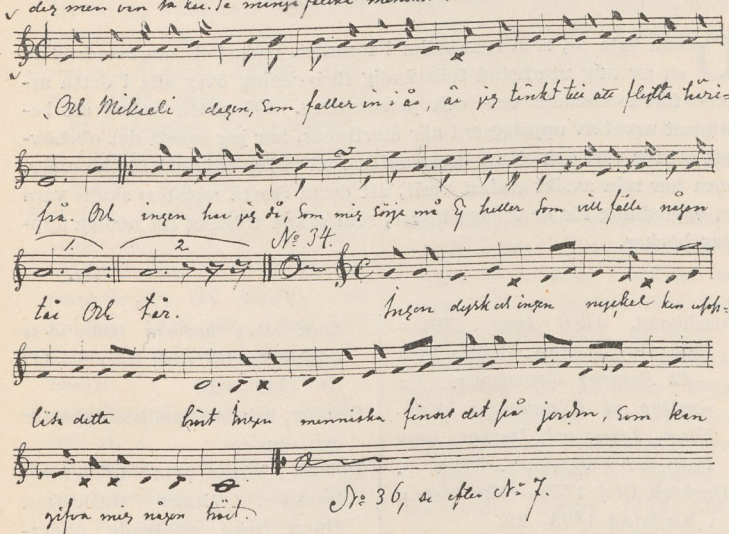 dig men vän så kan Ja många falska
Och Mikaeli dagen, Som faller in i år, är jag tänkt till att flytta häri=
från. Och ingen har jag då, Som mig sörja må Ej heller Som vill fälla någon
1. 2 No 34.
tår Och tår. Ingen dyrk och ingen nyckel kan upp=
låsa detta bröst Ingen menniska finnes det på jorden, Som kan
gifva mig någon tröst. No 36, se efter No 7.